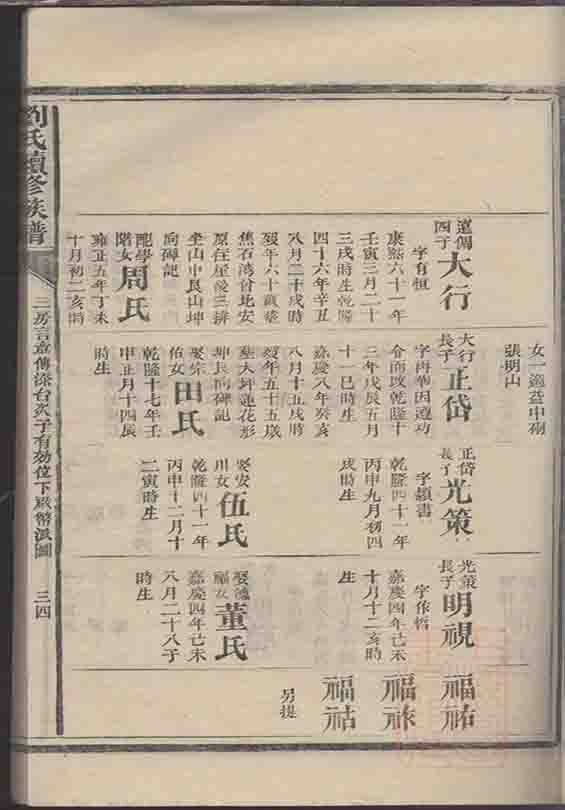 劉氏續修族譜
三房言意傳深台次子有効位下嚴幣派圖
三四
女一適益中砌
張明山
遠傳
四子
大行
字有恒
康熙六十一年
壬寅三月二十
三戌時生乾隆
四十六年辛丑
八月二十戌時
歿年六十歲葬
蕉石灣台北安
原在屋後三排
坐山中艮山坤
向碑記
配學
階女
周氏
雍正五年丁未
十月初二亥時
大行
長子
正岱
字再華因遵功
令而改乾隆十
三年戊辰五月
十一巳時生
嘉慶八年癸亥
八月十五戌時
歿年五十五歲
葬大坪蓮花形
坤艮向碑記
娶宗
佑女
田氏
乾隆十七年壬
申正月十四辰
時生
正岱
長子
光策
字績書
乾隆四十一年
丙申九月初四
戌時生
娶安
川女
伍氏
乾隆四十一年
丙申十二月十
二寅時生
光策
長子
明視
字作哲
嘉慶四年己未
十月十二亥時
生
娶德
福女
董氏
嘉慶四年己未
八月二十八子
時生
福祐
福祿
福祜
另提